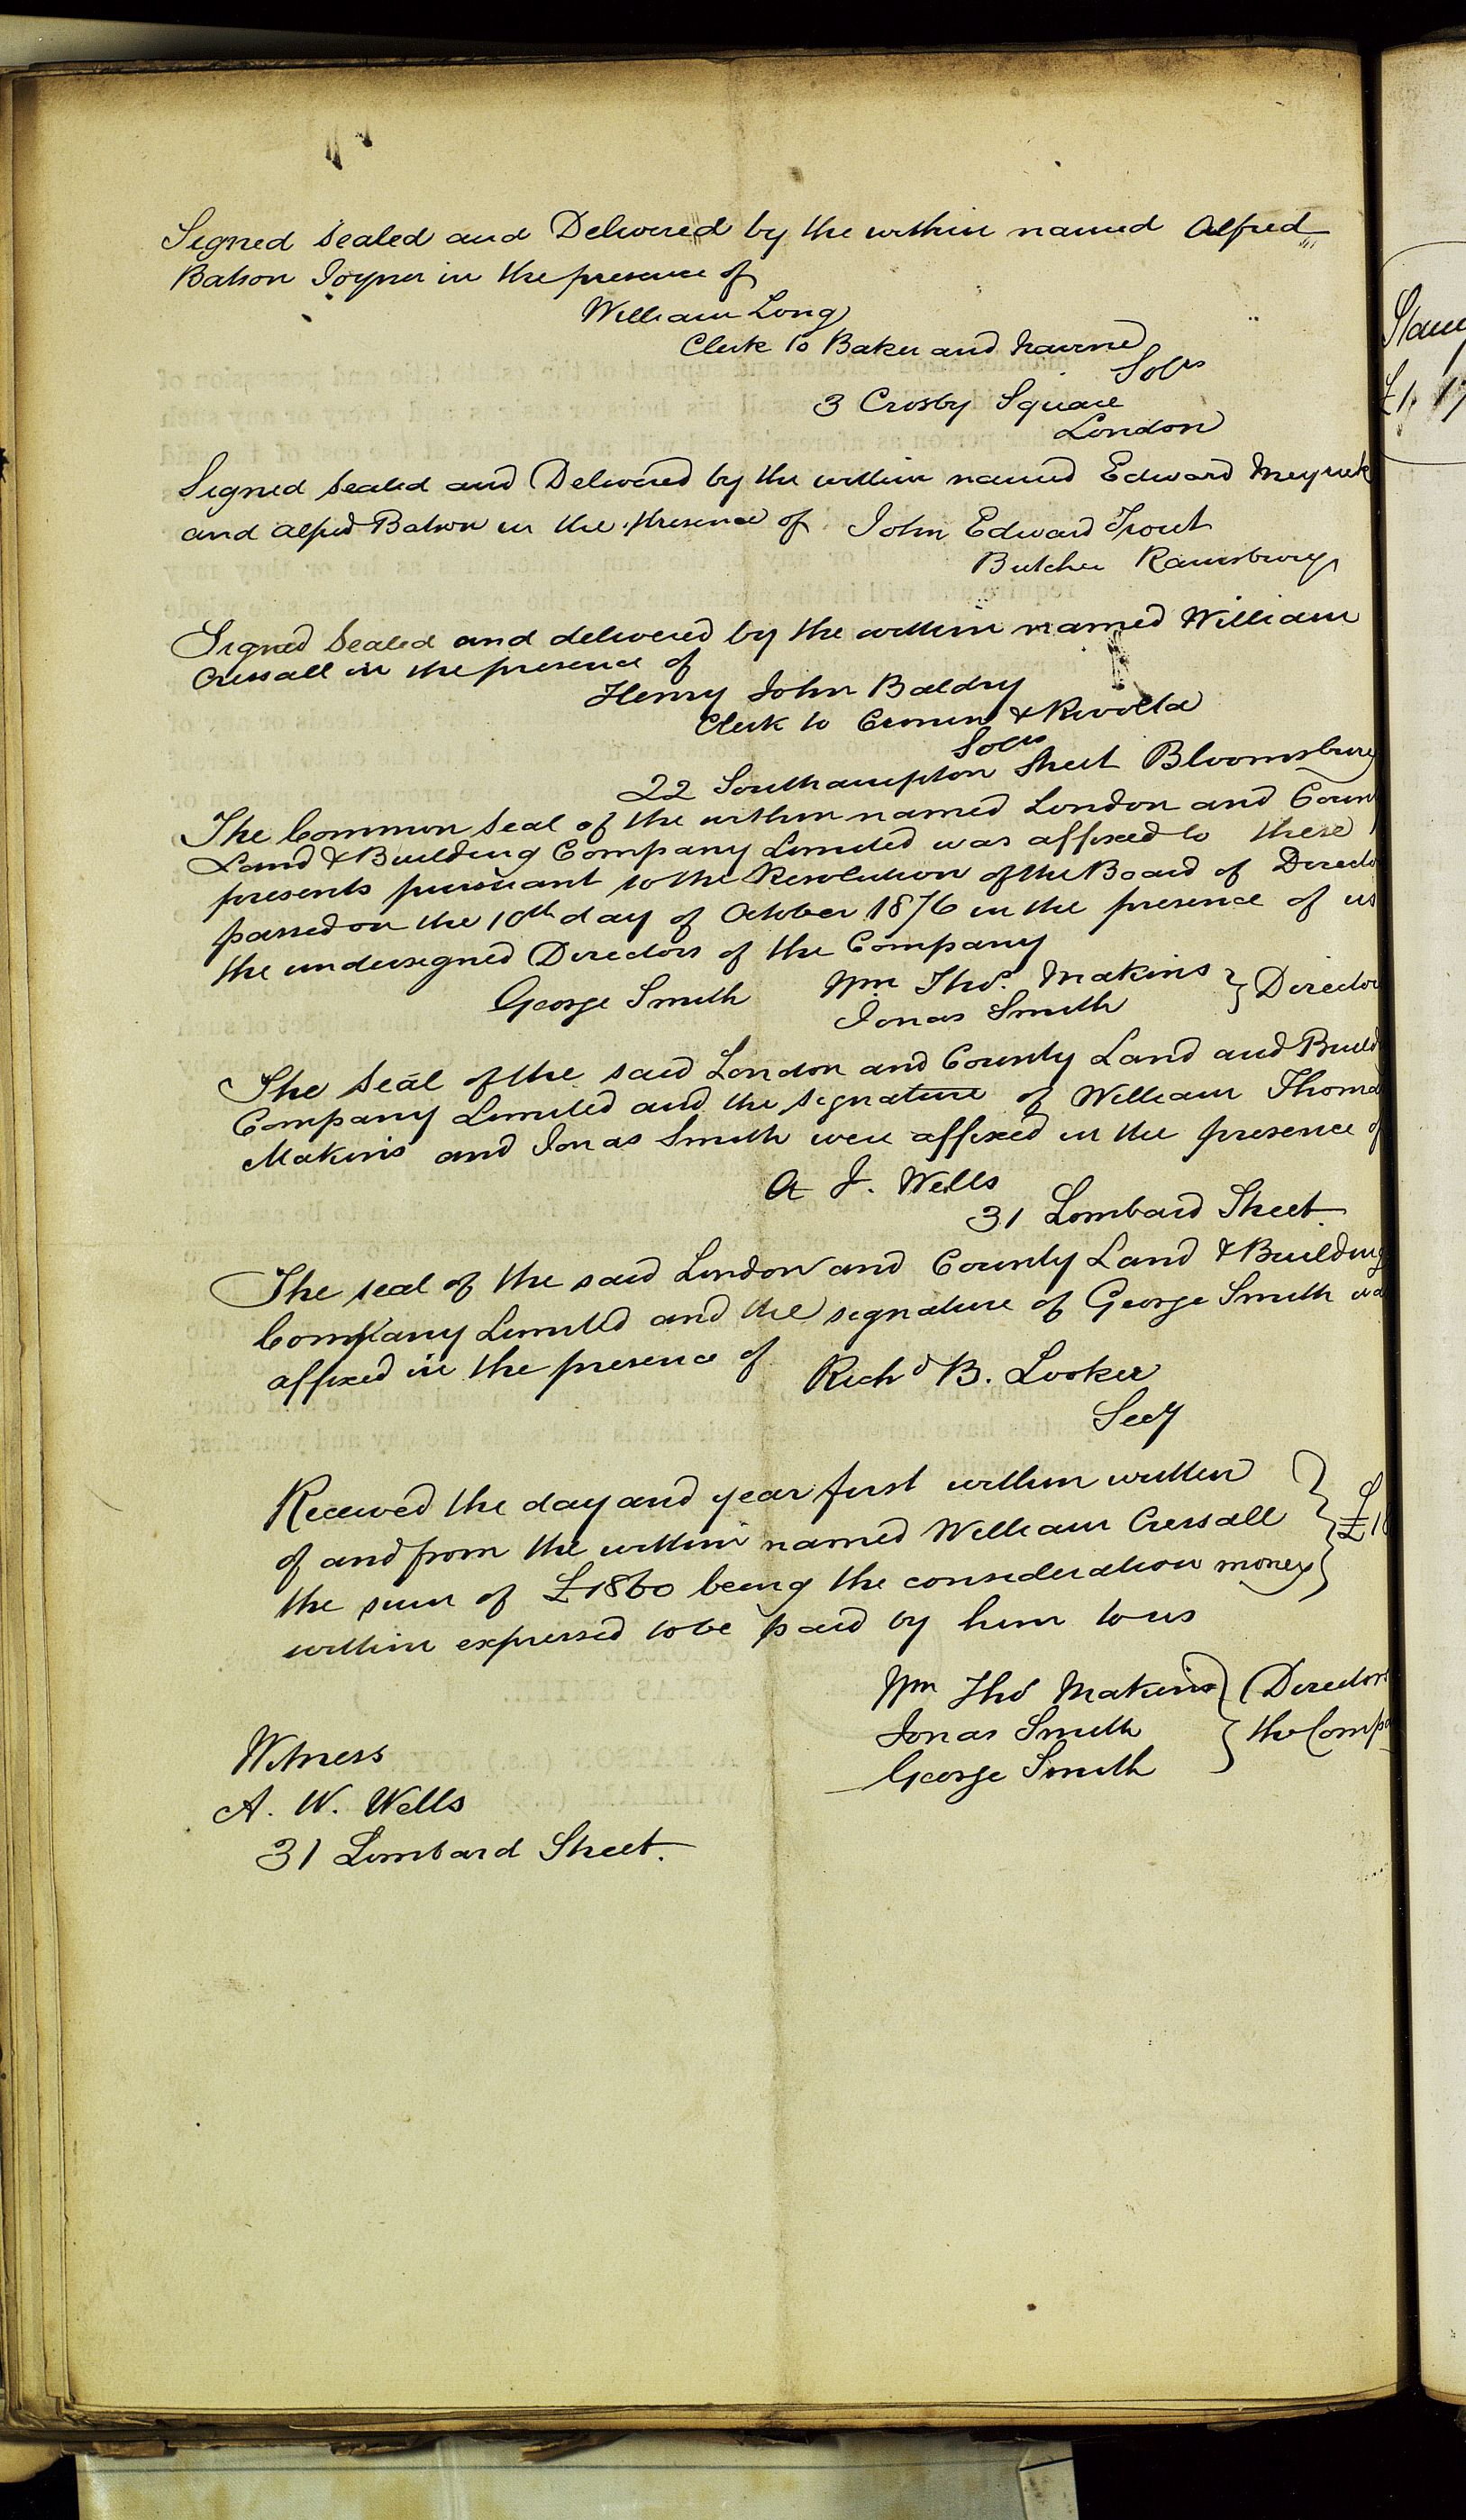 Signed Sealed and Delivered by the within named Alfred
Batson Joyner in the presence of
William Long
Clerk to Baker and Nairne
Solrs
3 Crosby Square
London
Signed Sealed and Delivered by the within named Edward Meyrick
and Alfred Batson in the presence of John Edward Trout
Butcher Ramsbury
Signed Sealed and delivered by the within named William
Cressall in the presence of
Henry John Baldry
Clerk to Cronin & Rivolta
Solrs
22 Southampton Street Bloomsbury
The Common Seal of the within named London and Coun
Land & Building Company Limited was affixed to these
presents pursuant to the Resolution of the Board of Directo
passed on the 10th day of October 1876 in the presence of us
the undersigned Directors of the Company
George Smith Wm Thos. Makins } Director
Jonas Smith
The Seal of the said London and County Land and Build
Company Limited and the signature of William Thomas
Makins and Jonas Smith were affixed in the presence of
A J. Wells
31 Lombard Street.
The seal of the said London and County Land & Building
Company Limited and the signature of George Smith wa
affixed in the presence of Richd B. Looker
Secy
Received the day and year first within written
of and from the within named William Cressall £18
the sum of £1860 being the consideration money
within expressed to be paid by him to us
Wm Thos Makins } Directors
Jonas Smith the Compa
George Smith
Witness
A. W. Wells
31 Lombard Street.
Stam
£1. 17